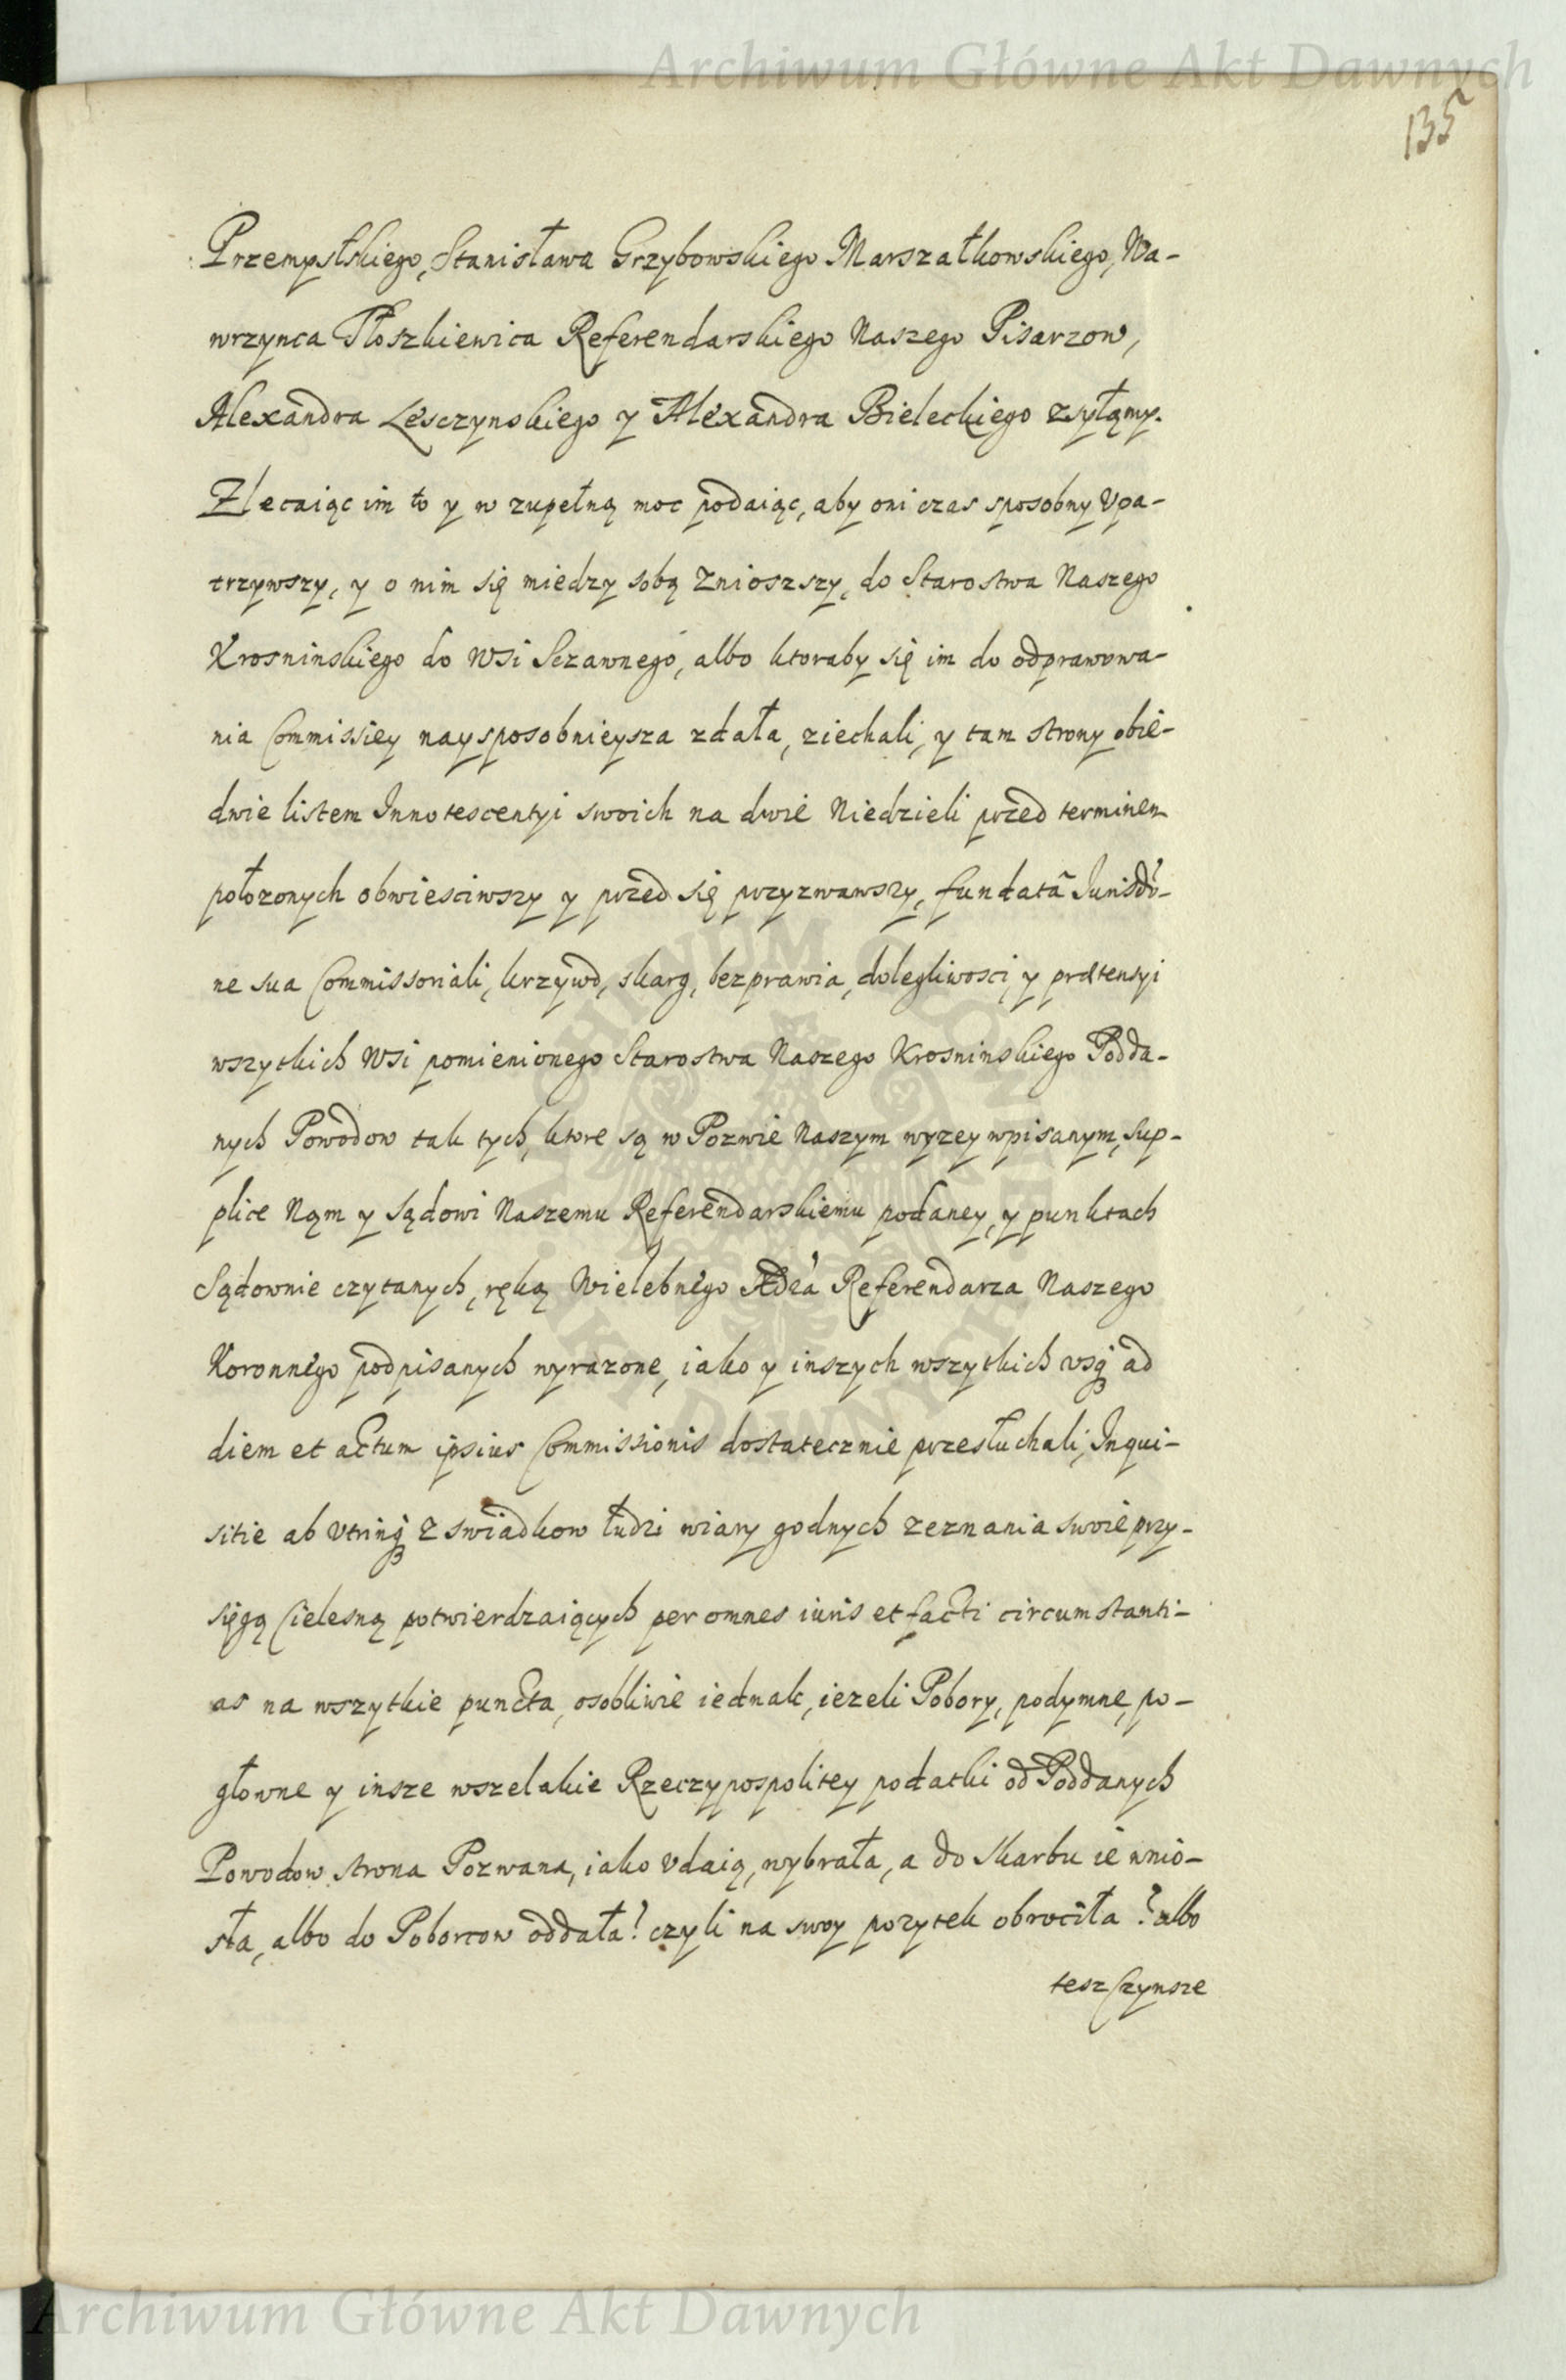 Archiwum Główne Akt Dawnych
135
Przemysłskiego, Stanisława Grzybowskiego Marszałkowskiego, Wa-
wrzynca Płoszkiewica Referendarskiego Naszego Pisarzow,
Alexandra Lesczynskiego y Alexandra Bieleckiego zsyłąmy.
Zlecaiąc im to y w zupełną moc podaiąc, aby oni czas sposobny Vpa-
trzywszy, y o nim się miedzy sobą Znioszszy, do Starostwa Naszego
Krosninskiego do Wsi Sczawnego, albo ktoraby się im do odprawowa-
nia Commissiey naysposobnieysza zdała, ziechali, y tam strony obie-
dwie listem Innotescentyi swoich na dwie Niedzieli przed terminem
położonych obwiesciwszy y przed się przyzwawszy, fundatâ Jurisdõ-
ne sua Commissoriali, krzywd, skarg, bezprawia, dolegliwosci y prætensyi
wszytkich Wsi pomienionego Starostwa Naszego Krosninskiego Podda-
nych Powodow tak tych, ktore są w Pozwie Naszym wyzey wpisanym, Sup-
plice Nąm y Sądowi Naszemu Referendarskiemu podaney, y punktach
Sądownie czytanych, ręką Wielebnego Refferendarza Naszego
Koronnego podpisanych wyrazone, iako y inszych wszytkich vsq ad
diem et actum ipsius Commissionis dostatecznie przesłuchali, Inqui-
sitie ab Vtrinq Z swiadkow ludzi wiary godnych zeznania swoie przy-
sięgą Cielesną potwierdzaiących per omnes iuris et facti circumstanti-
as na wszytkie puncta, osobliwie iednak, iezeli Pobory, podymne, po-
głowne y insze wszelakie Rzeczypospolitey podatki od Poddanych
Powodow strona Pozwana, iako vdaią, wybrała, a do Skarbu ie wnio-
sła, albo do Poborcow oddała? czyli na swoy pozytek obrociła? albo
tesz Czynsze
Archiwum Główne Akt Dawnych